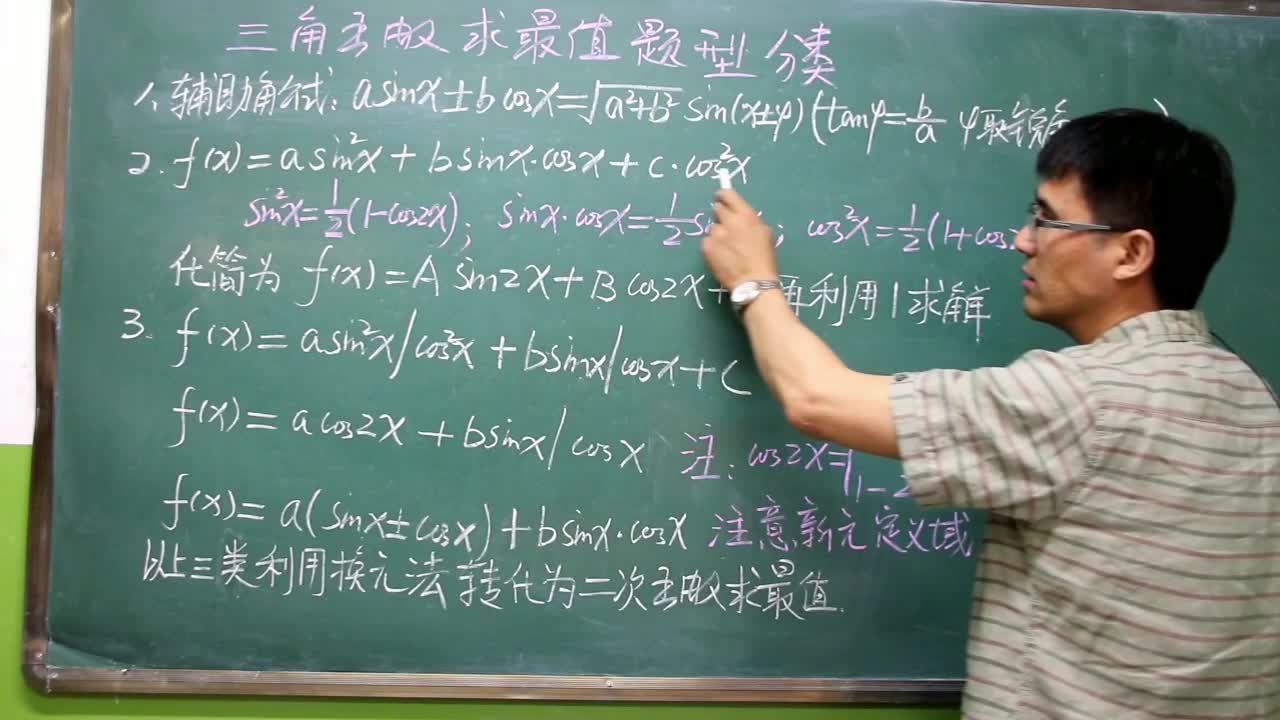 三角函数求最值题型分类
1、辅助角公式: asinx±bcosx=√(a²+b²) sin(x±φ) (tanφ=b/a φ取锐角 )
2. f(x)=asin²x+bsinx·cosx+c·cos²x
sin²x=1/2(1-cos2x); sinx·cosx=1/2 ; cos²x=1/2(1+cos
化简为 f(x)=Asin2x+Bcos2x+ 再利用1求解
3. f(x)=asin²x/cos²x+bsinx/cosx+C
f(x)=acos2x+bsinx/cosx 注: cos2x=
f(x)=a(sinx±cosx)+bsinx·cosx 注意新元定义域
以上三类利用换元法转化为二次函数求最值.